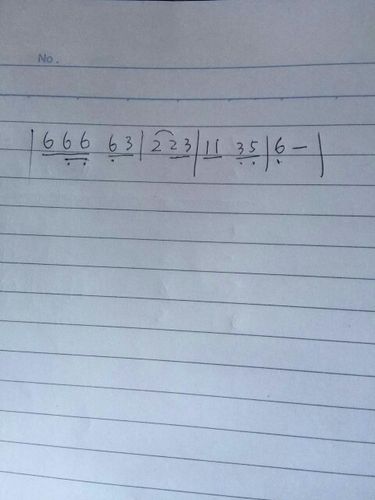 No.
| 6 6 6 6 3 | 2 2 3 | 1 1 3 5 | 6 – |